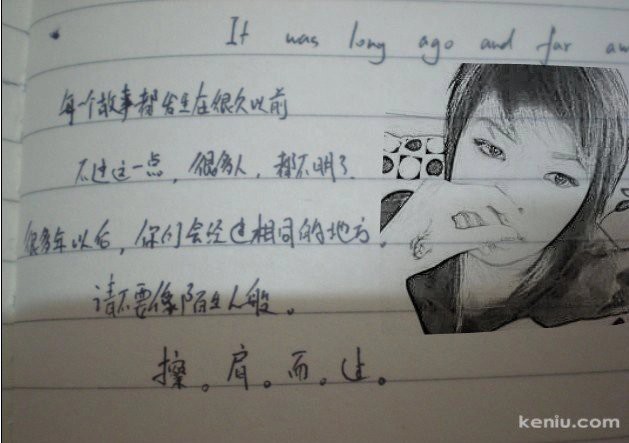 It was long ago and far aw
每个故事都发生在很久以前
不过这一点，很多人，都不明了.
很多年以后，你们会经过相同的地方。
请不要像陌生人般。
擦。肩。而。过。
keniu.com